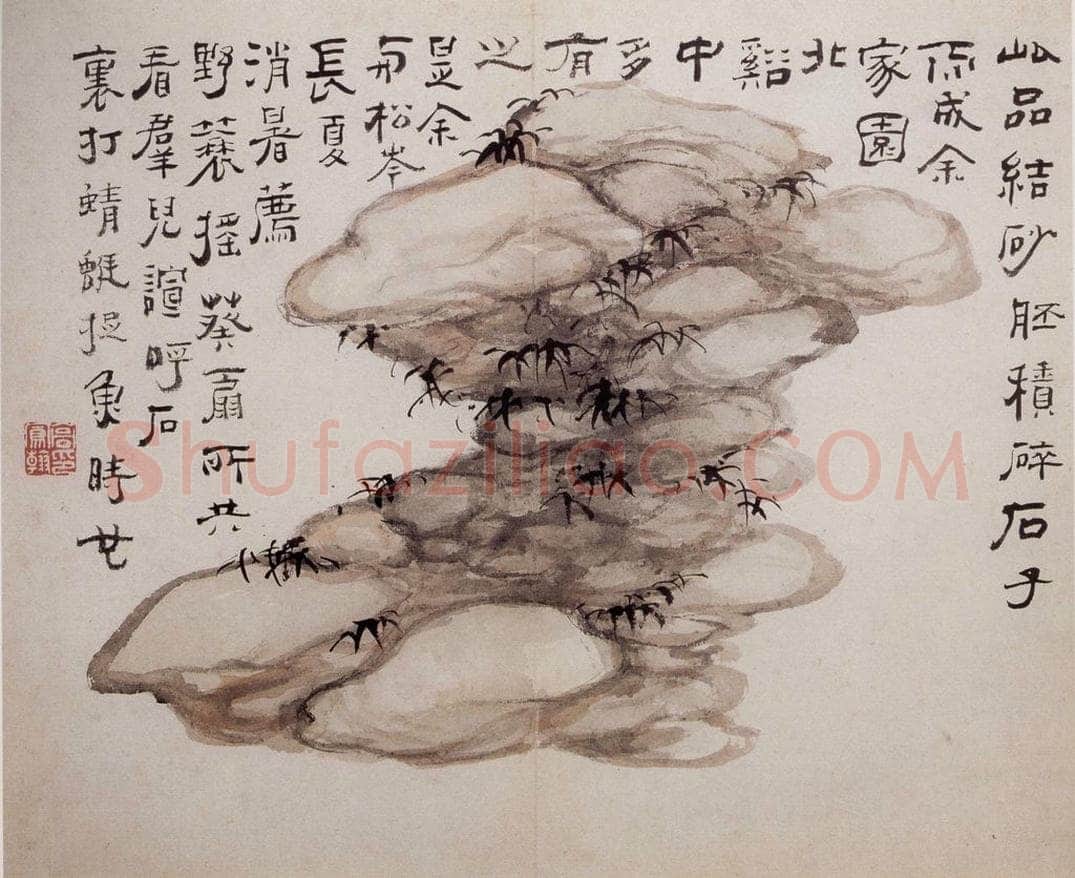 此品結砂胚積碎石子
成余
家園
北
谿
中
多
有
之
是余
与松岑
長夏
消暑薦
野搖葵扇所共
看羣兒諠呼石
裏打蜻蜓捉魚時也
高鳳翰印
Shufaziliao.COM